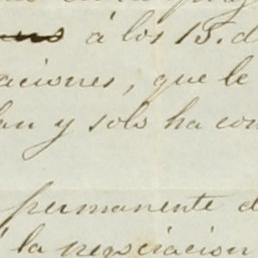 á los 15. d
aciones, que le
lan y solo ha con
permanente d
á la negociacion